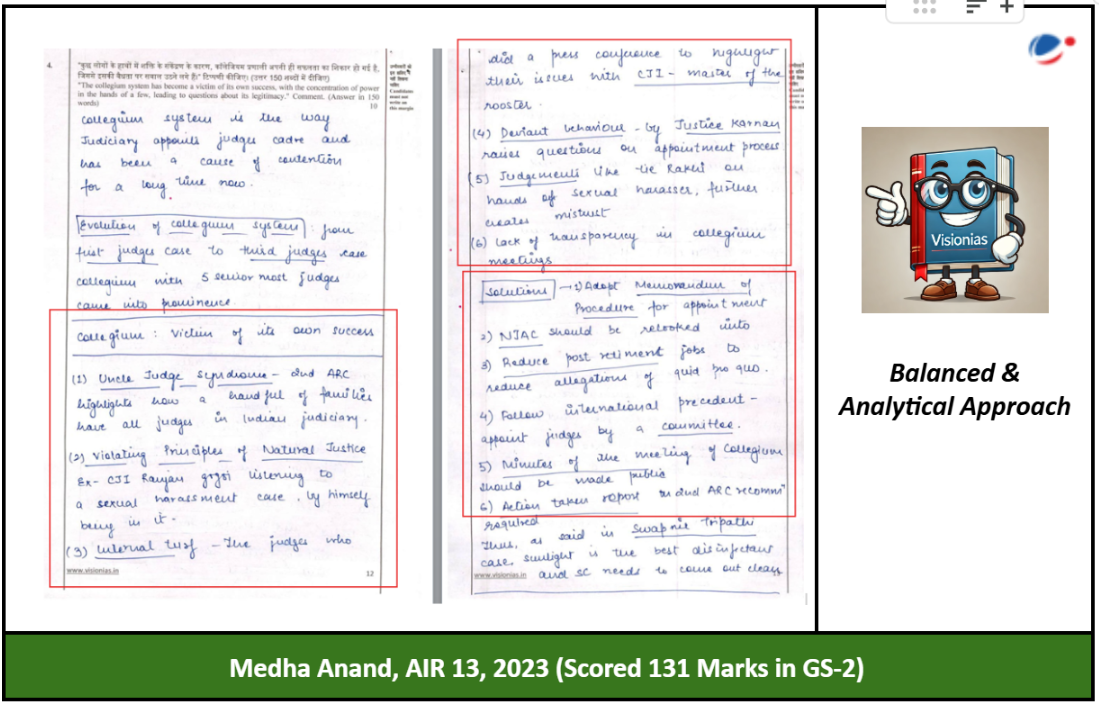 4.
"कुछ लोगों के हाथों में शक्ति के संकेंद्रण के कारण, कॉलेजियम प्रणाली अपनी ही सफलता का शिकार हो गई है,
जिससे इसकी वैधता पर सवाल उठने लगे हैं।" टिप्पणी कीजिए। (उत्तर 150 शब्दों में दीजिए)
"The collegium system has become a victim of its own success, with the concentration of power
in the hands of a few, leading to questions about its legitimacy." Comment. (Answer in 150
words)
10
collegium system is the way
Judiciary appoints judges cadre and
has been a cause of contention
for a long time now.
Evolution of collegium system : from
first judges case to third judges case
collegium with 5 senior most judges
came into prominence
Collegium : Victim of its own success
(1) Uncle Judge Syndrome - 2nd ARC
highlights how a handful of families
have all judges in Indian judiciary.
(2) Violating Principles of Natural Justice
Ex- CJI Ranjan gogoi listening to
a sexual harassment case, by himself
being in it.
(3) Internal turf - The judges who
www.visionias.in
12
did a press conference to highlight
their issues with CJI - master of the
rooster.
(4) Deviant behaviour - by Justice Karnan
raises questions on appointment process
(5) Judgements like tie Rakhi on
hands of sexual harasser, further
creates mistrust
(6) Lack of transparency in collegium
meetings
Solutions → 1) Adopt Memorandum of
Procedure for appointment
2) NJAC should be relooked into
3) Reduce post retiment jobs to
reduce allegations of quid pro quo.
4) Follow international precedent -
appoint judges by a committee.
5) Minutes of the meeting of Collegium
should be made public
6) Action taken report on 2nd ARC recomm
required
Thus, as said in Swapnil Tripathi
case, sunlight is the best disinfectant
and SC needs to come out clean
www.visionias.in
Visionias
Balanced &
Analytical Approach
Medha Anand, AIR 13, 2023 (Scored 131 Marks in GS-2)